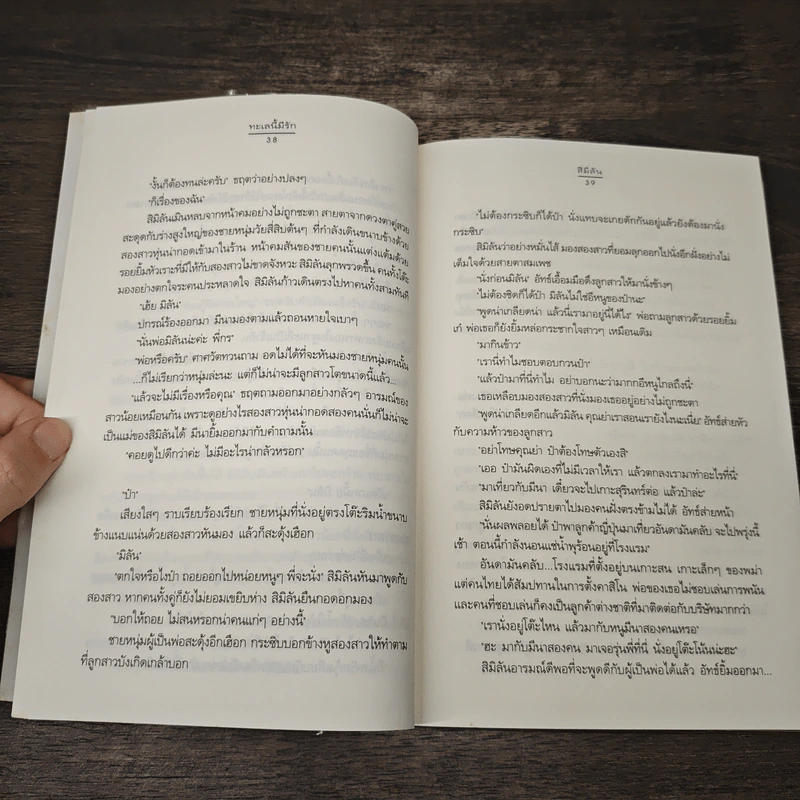 ทะเลนี้มีรัก
38
'งั้นก็ต้องทนล่ะครับ' ธฤตว่าอย่างปลงๆ
'ก็เรื่องของฉัน'
สิมิลันเมินหลบจากหน้าคมอย่างไม่ถูกชะตา สายตาจากดวงตาคู่สวย
สะดุดกับร่างสูงใหญ่ของชายหนุ่มวัยสี่สิบต้นๆ ที่กำลังเดินขนาบข้างด้วย
สองสาวหุ่นน่ากอดเข้ามาในร้าน หน้าคมสันของชายคนนั้นแต่งแต้มด้วย
รอยยิ้มหัวเราะที่มีให้กับสองสาวไม่ขาดจังหวะ สิมิลันลุกพรวดขึ้น คนทั้งโต๊ะ
มองอย่างตกใจระคนประหลาดใจ สิมิลันก้าวเดินตรงไปหาคนทั้งสามทันที
'เฮ้ย มิลัน'
ปกรณ์ร้องออกมา มีนามองตามแล้วถอนหายใจเบาๆ
'นั่นพ่อมิลันน่ะค่ะ พี่กร'
'พ่อหรือครับ' ศาศวัตทวนถาม อดไม่ได้ที่จะหันมองชายหนุ่มคนนั้น
...ก็ไม่เรียกว่าหนุ่มล่ะนะ แต่ก็ไม่น่าจะมีลูกสาวโตขนาดนี้แล้ว...
'แล้วจะไม่มีเรื่องหรือคุณ' ธฤตถามออกมาอย่างกลัวๆ อารมณ์ของ
สาวน้อยเหมือนกัน เพราะดูอย่างไรสองสาวหุ่นน่ากอดสองคนนั่นก็ไม่น่าจะ
เป็นแม่ของสิมิลันได้ มีนายิ้มออกมากับคำถามนั้น
'คอยดูไปดีกว่าค่ะ ไม่มีอะไรน่ากลัวหรอก'
'ป๋า'
เสียงใสๆ ราบเรียบร้องเรียก ชายหนุ่มที่นั่งอยู่ตรงโต๊ะริมน้ำขนาบ
ข้างแนบแน่นด้วยสองสาวหันมอง แล้วก็สะดุ้งเฮือก
'มิลัน'
'ตกใจหรือไงป๋า ถอยออกไปหน่อยหนูๆ พี่จะนั่ง' สิมิลันหันมาพูดกับ
สองสาว หากคนทั้งคู่ก็ยังไม่ยอมเขยิบห่าง สิมิลันยืนกอดอกมอง
'บอกให้ถอย ไม่สนหรอกน่าคนแก่ๆ อย่างนี้'
ชายหนุ่มผู้เป็นพ่อสะดุ้งอีกเฮือก กระซิบบอกข้างหูสองสาวให้ทำตาม
ที่ลูกสาวบังเกิดเกล้าบอก
สิมิลัน
39
'ไม่ต้องกระซิบก็ได้ป๋า นั่งแทบจะเกยตักกันอยู่แล้วยังต้องมานั่ง
กระซิบ'
สิมิลันว่าอย่างหมั่นไส้ มองสองสาวที่ยอมลุกออกไปนั่งอีกฝั่งอย่างไม่
เต็มใจด้วยสายตาสมเพช
'นั่งก่อนมิลัน' อัทธ์เอื้อมมือดึงลูกสาวให้มานั่งข้างๆ
'ไม่ต้องชิดก็ได้ป๋า มิลันไม่ใช่อีหนูของป๋านะ'
'พูดน่าเกลียดน่า แล้วนี่เรามาอยู่นี่ได้ไง' พ่อถามลูกสาวด้วยรอยยิ้ม
เก๋ พ่อเธอก็ยังยิ้มหล่อกระชากใจสาวๆ เหมือนเดิม
'มากินข้าว'
'เรานี่ทำไมชอบตอบกวนป๋า'
'แล้วป๋ามาที่นี่ทำไม อย่าบอกนะว่ามากกอีหนูไกลถึงนี่'
เธอเหลือบมองสองสาวที่นั่งมองเธออยู่อย่างไม่ถูกชะตา
'พูดน่าเกลียดอีกแล้วมิลัน คุณย่าเราสอนเรายังไงนะเนี่ย' อัทธ์ส่ายหัว
กับความห้าวของลูกสาว
'อย่าโทษคุณย่า ป๋าต้องโทษตัวเองสิ'
'เออ ป๋ามันผิดเองที่ไม่มีเวลาให้เรา แล้วตกลงเรามาทำอะไรที่นี่'
'มาเที่ยวกับมีนา เดี๋ยวจะไปเกาะสุรินทร์ต่อ แล้วป๋าล่ะ'
สิมิลันยังอดปรายตาไปมองคนฝั่งตรงข้ามไม่ได้ อัทธ์ส่ายหน้า
'นั่นผลพลอยได้ ป๋าพาลูกค้าญี่ปุ่นมาเที่ยวอันดามันคลับ จะไปพรุ่งนี้
เช้า ตอนนี้กำลังนอนแช่น้ำพุร้อนอยู่ที่โรงแรม'
อันดามันคลับ...โรงแรมที่ตั้งอยู่บนเกาะสน เกาะเล็กๆ ของพม่า
แต่คนไทยได้สัมปทานในการตั้งคาสิโน พ่อของเธอไม่ชอบเล่นการพนัน
และคนที่ชอบเล่นก็คงเป็นลูกค้าต่างชาติที่มาติดต่อกับบริษัทมากกว่า
'เรานั่งอยู่โต๊ะไหน แล้วมากับหนูมีนาสองคนเหรอ'
'ฮะ มากับมีนาสองคน มาเจอรุ่นพี่ที่นี่ นั่งอยู่โต๊ะโน้นน่ะฮะ'
สิมิลันอารมณ์ดีพอที่จะพูดดีกับผู้เป็นพ่อได้แล้ว อัทธ์ยิ้มออกมา...